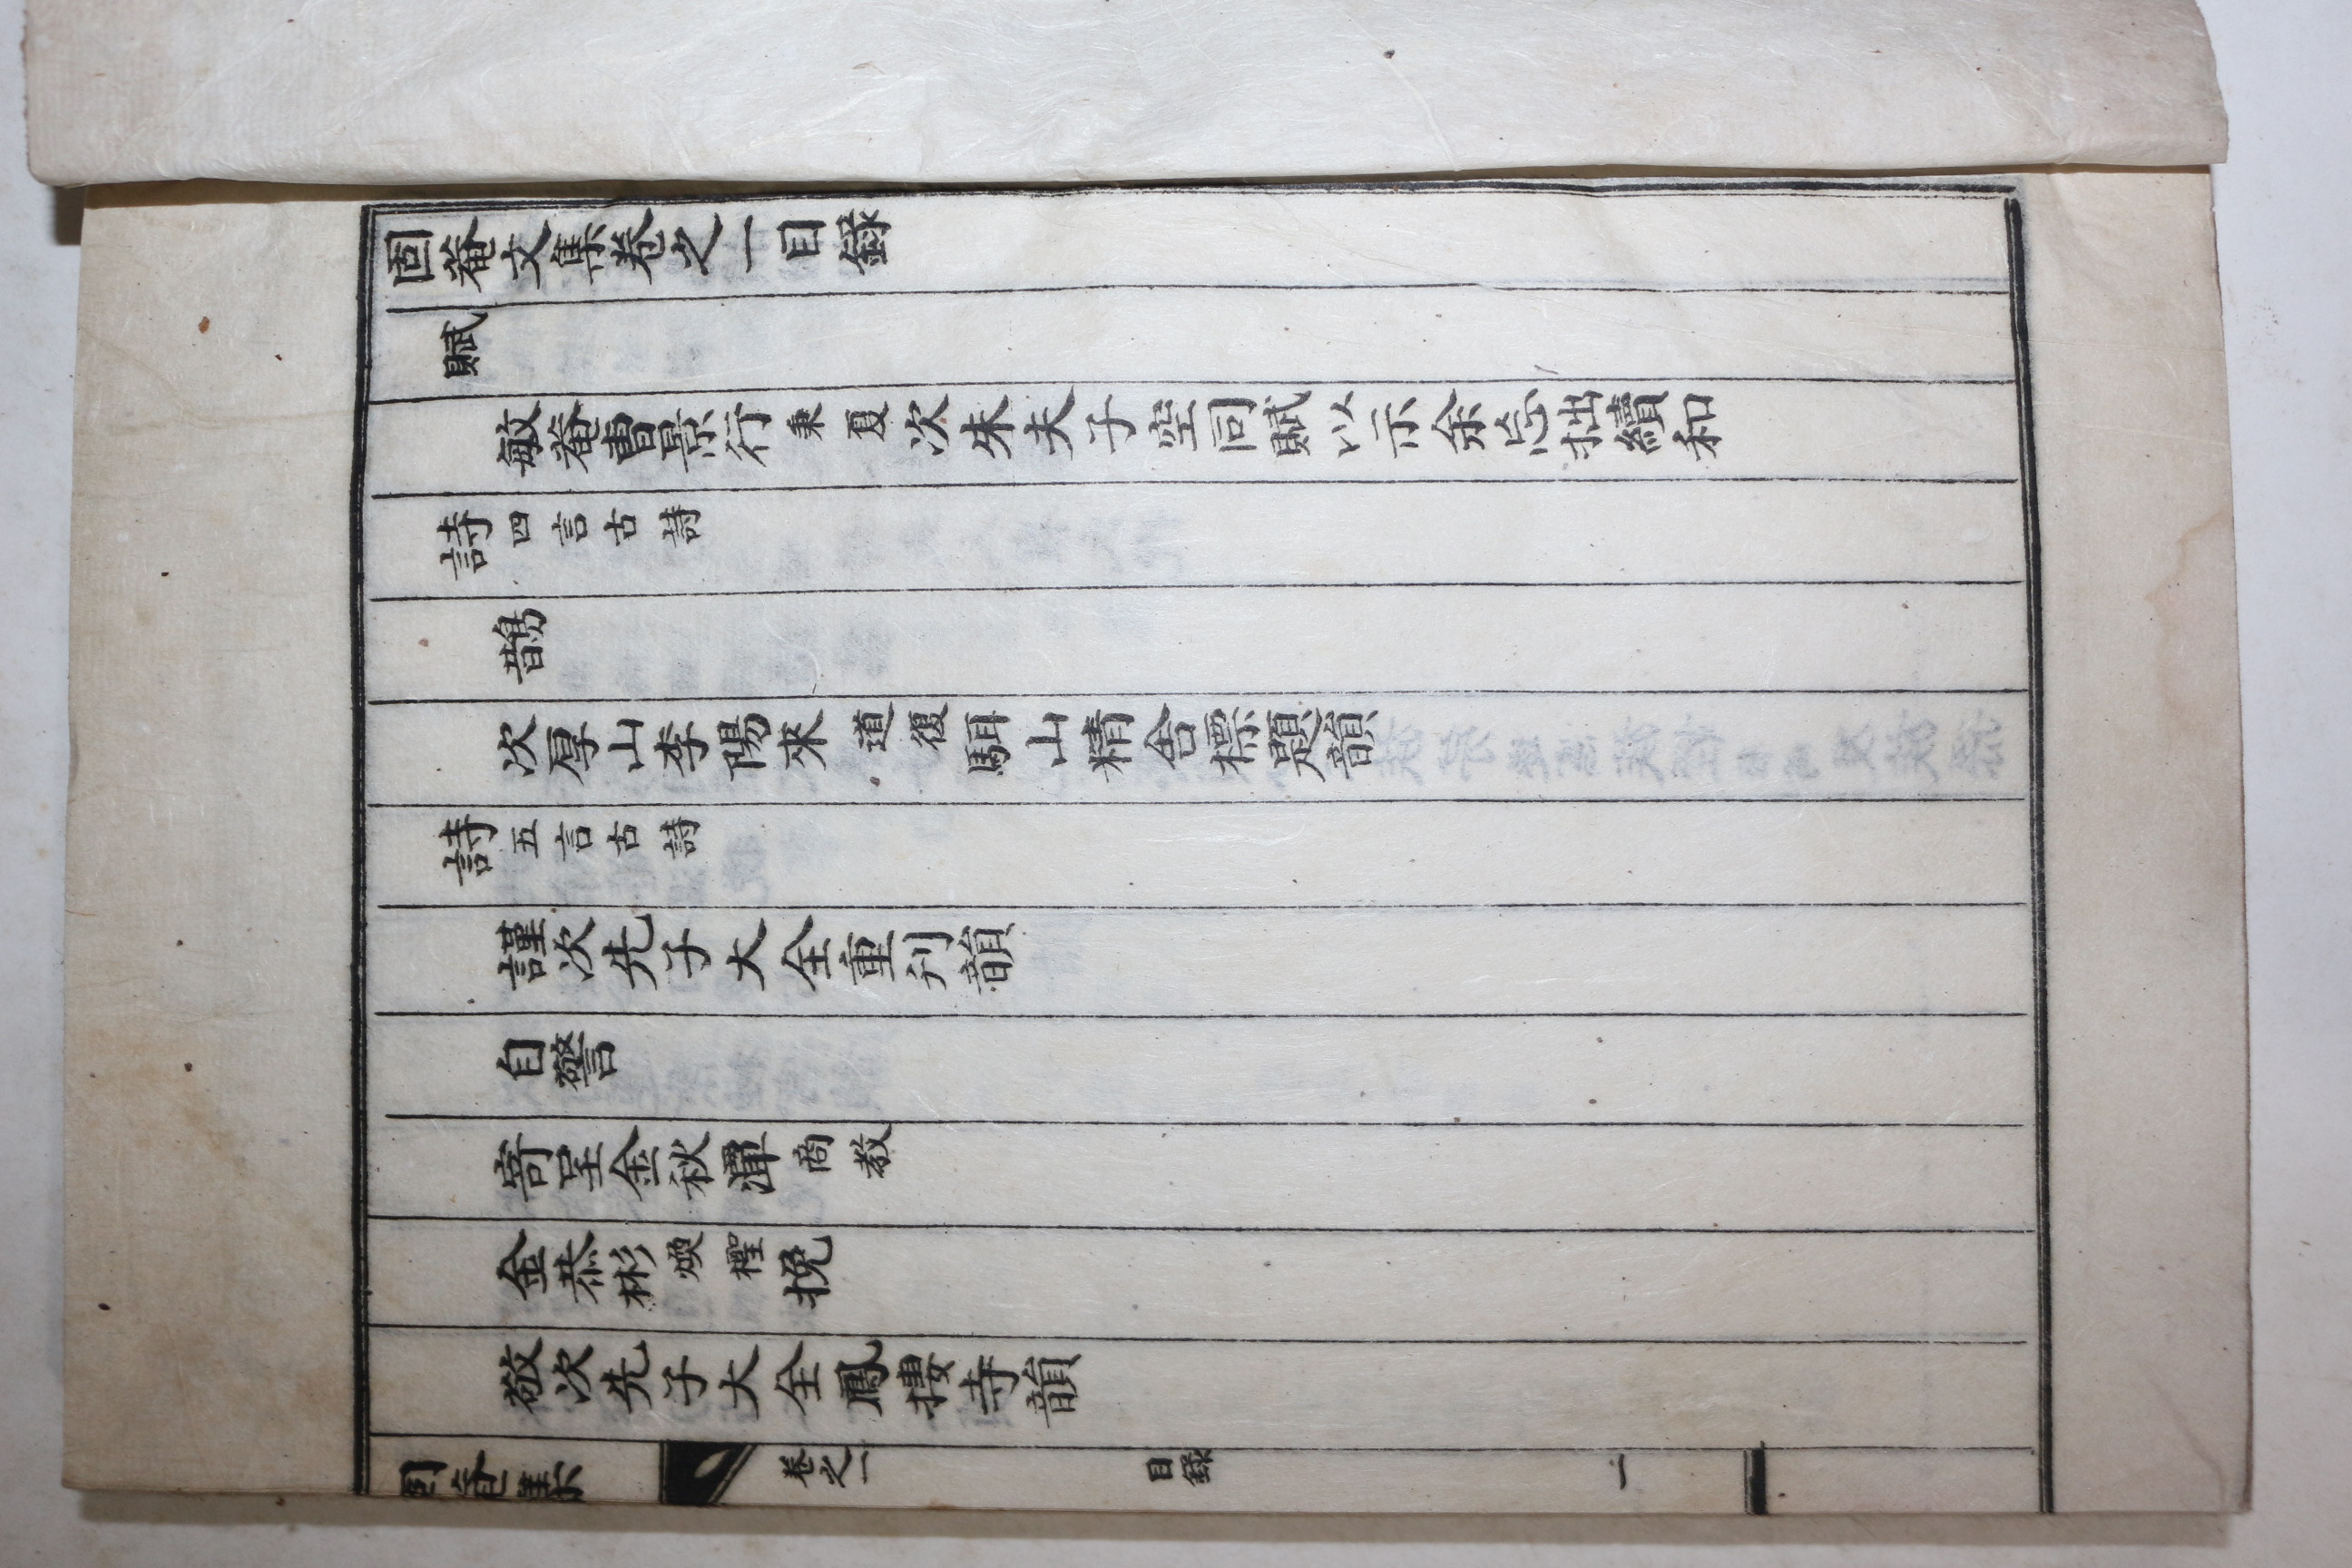 固菴文集卷之一目錄
賦
敏菴曺景行秉夏次朱夫子空同賦以示余忘拙續和
詩四言古詩
鵲
次厚山李陽來道復駬山精舍標題韻
詩五言古詩
謹次先子大全重刊韻
自警
寄呈金秋潭商教
金恭彬煥檉挽
敬次先子大全鳳摟寺韻
固菴集 卷之一 目錄 一